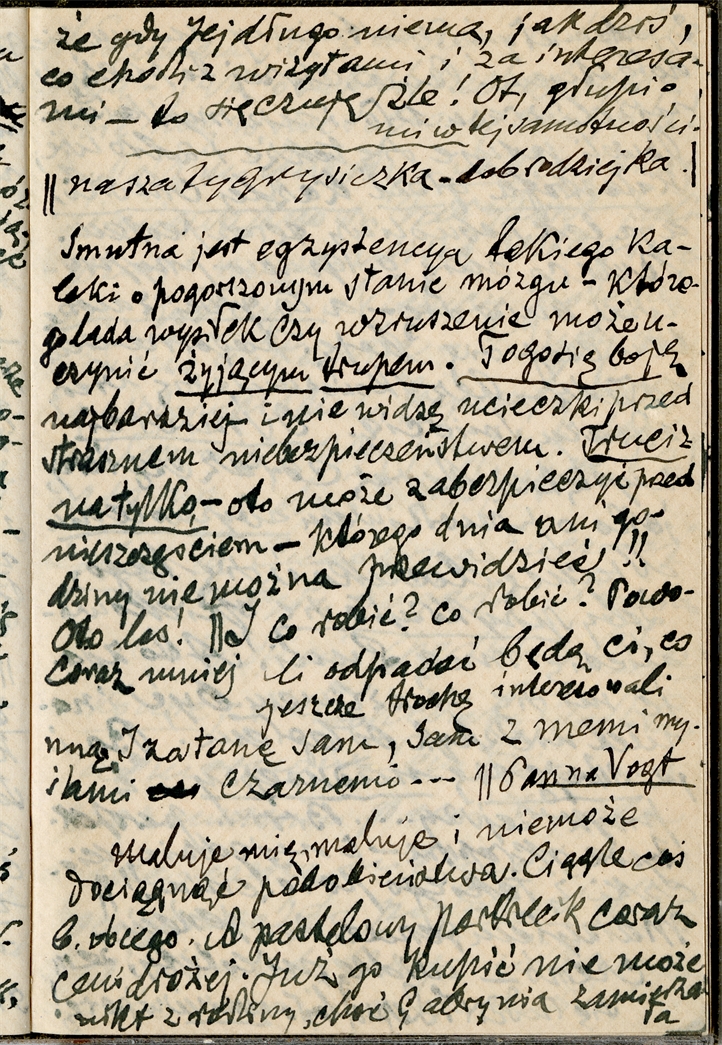 że gdy jej długo niema, jak dziś,
co chodzi z wizytami i za interesa-
mi – to się czuję źle! Ot, głupio
mi w tej samotności.
|| nasza tygrysiczka – dobrodziejka.|
Smutna jest egzystencya takiego ka-
leki o pogorszonym stanie mózgu – które-
go lada wysiłek czy wzruszenie może u-
czynić żyjącym trupem. Tego się boję
najbardziej i nie widzę ucieczki przed
strasznem niebezpieczeństwem. Truciz-
na tylko, – oto może zabezpieczyć przed
nieszczęściem – którego dnia ani go-
dziny nie można przewidzieć!!
Oto los! || I co robić? co robić? Powo-
li odpadać będą ci, co
coraz mniej
jeszcze trochę interesowali
mną. I zostanę sam, sam z memi my-
ślami czarnemi --- || Panna Vogt
maluje mię, maluje i nie może
dociągnąć podobieństwa. Ciągle coś
b. obcego. A pastelowy portrecik coraz
ceni drożej. Już go kupić nie może
nikt z rodziny, choć Gabrynia zamierza
ła